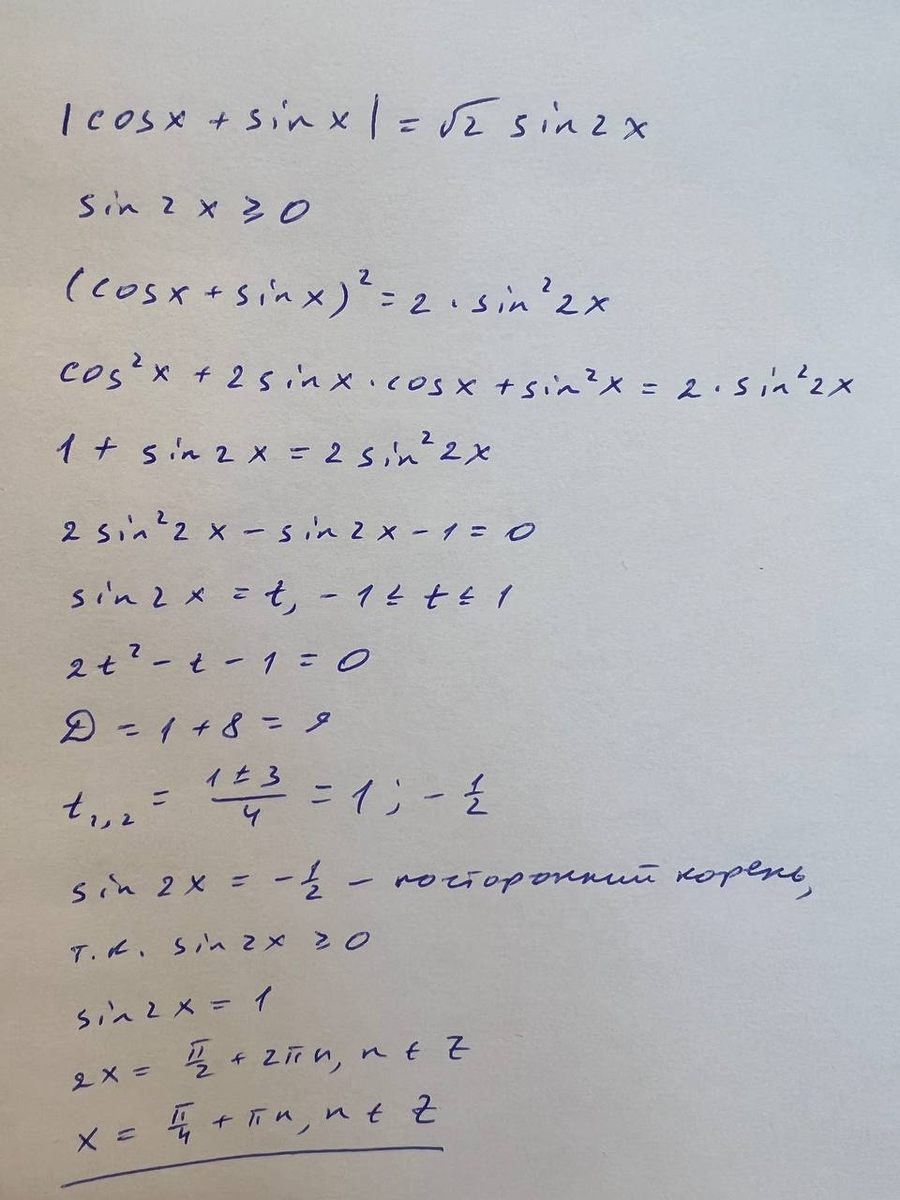 |cosx + sin x| = √2 sin2x
sin 2x ≥ 0
(cosx + sinx)² = 2 · sin²2x
cos²x + 2sinx · cosx + sin²x = 2 · sin²2x
1 + sin2x = 2sin²2x
2 sin²2x - sin2x - 1 = 0
sin2x = t, -1 ≤ t ≤ 1
2t² - t - 1 = 0
D = 1 + 8 = 9
t₁,₂ = (1 ± 3)/4 = 1; -1/2
sin 2x = -1/2 - посторонний корень,
т.к. sin2x ≥ 0
sin2x = 1
2x = π/2 + 2πn, n ∈ Z
x = π/4 + πn, n ∈ Z